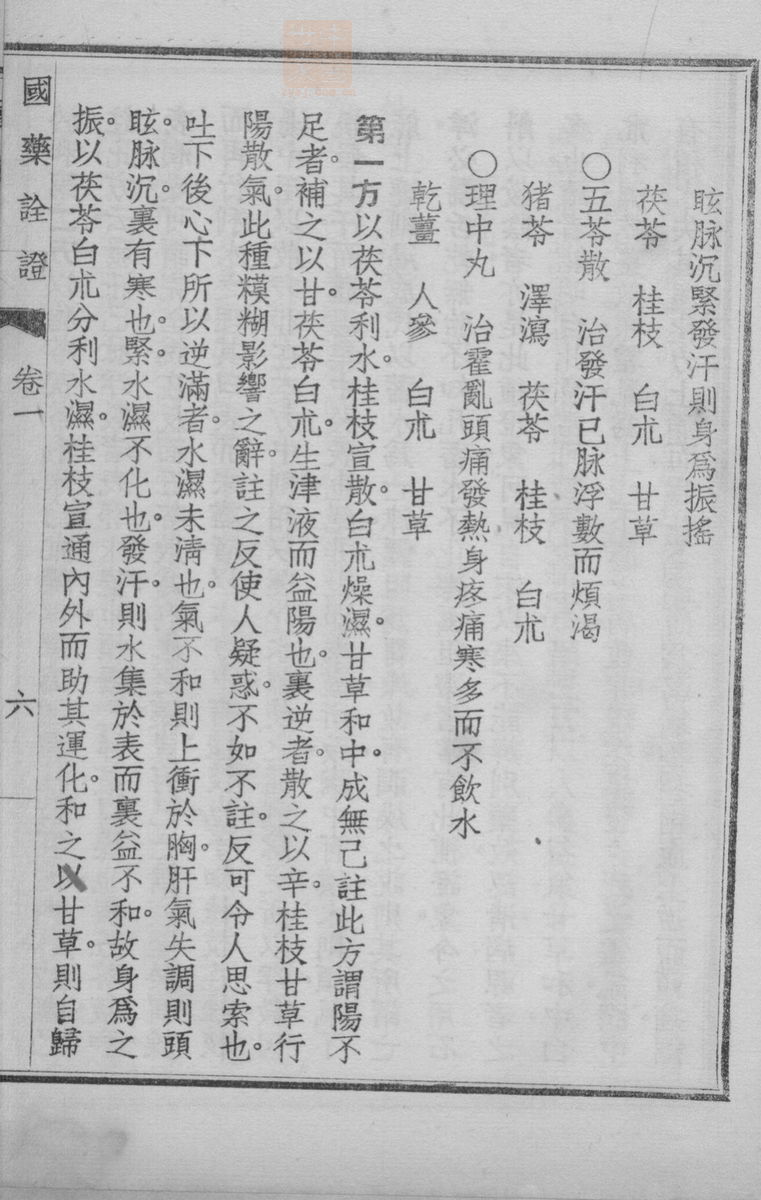 眩脉沉緊發汗則身爲振搖
茯苓　桂枝　白朮　甘草
○五苓散　治發汗已脉浮數而煩渴
猪苓　澤瀉　茯苓　桂枝　白朮
○理中丸　治霍亂頭痛發熱身疼痛寒多而不飲水
乾薑　人參　白朮　甘草
第一方以茯苓利水。桂枝宣散。白朮燥濕。甘草和中。成無己註此方謂陽不
足者。補之以甘。茯苓白朮。生津液而益陽也。裏逆者。散之以辛。桂枝甘草行
陽散氣。此種糢糊影響之辭。註之反使人疑惑。不如不註。反可令人思索也。
吐下後心下所以逆滿者。水濕未淸也。氣不和則上衝於胸。肝氣失調則頭
眩。脉沉。裏有寒也。緊。水濕不化也。發汗。則水集於表而裏益不和。故身爲之
振。以茯苓白朮分利水濕。桂枝宣通內外而助其運化。和之以甘草。則自歸
國藥詮證
卷一
六